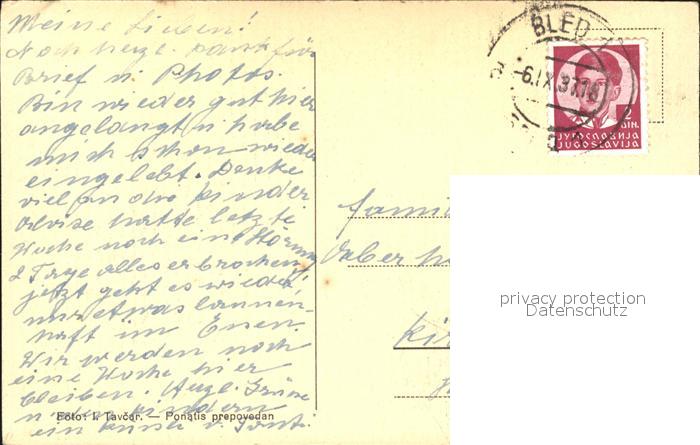 Meine Lieben!
Noch herzl. Dank für
Brief u. Photos.
Bin wieder gut hier
angelangt u. habe
mich schon wieder
eingelebt. Denke
viel an die Kinder
hatte letzte
Woche noch eine Störung
2 Tage alles erbrochen,
jetzt geht es wieder
nur etwas launen-
haft im Essen.
Wir werden noch
eine Woche hier
bleiben. Herzl. Grüße
u. den Kindern
ein v. Tante
Foto: I. Tavčar. — Ponatis prepovedan
BLED
-6.IX.37.18
2
DIN.
ЈУГОСЛАВИЈА
JUGOSLAVIJA
Famili
privacy protection
Datenschutz